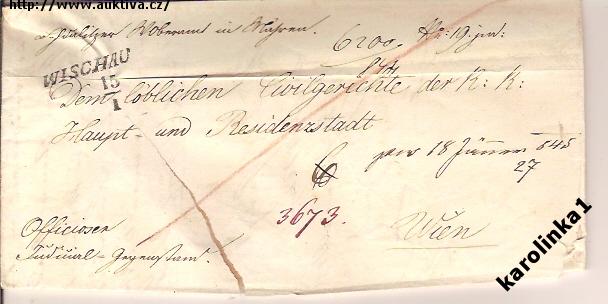 http://www.auktiva.cz/
Oberamt in Mähren.
6200 No: 19. jud:
WISCHAU
15
1
844
Dem löblichen Civilgerichte der K: K:
Haupt- und Residenzstadt
prs 18 Jänner 845
27
3673.
Wien
Officioser
Judicial-Gegenstand.
karolinka1